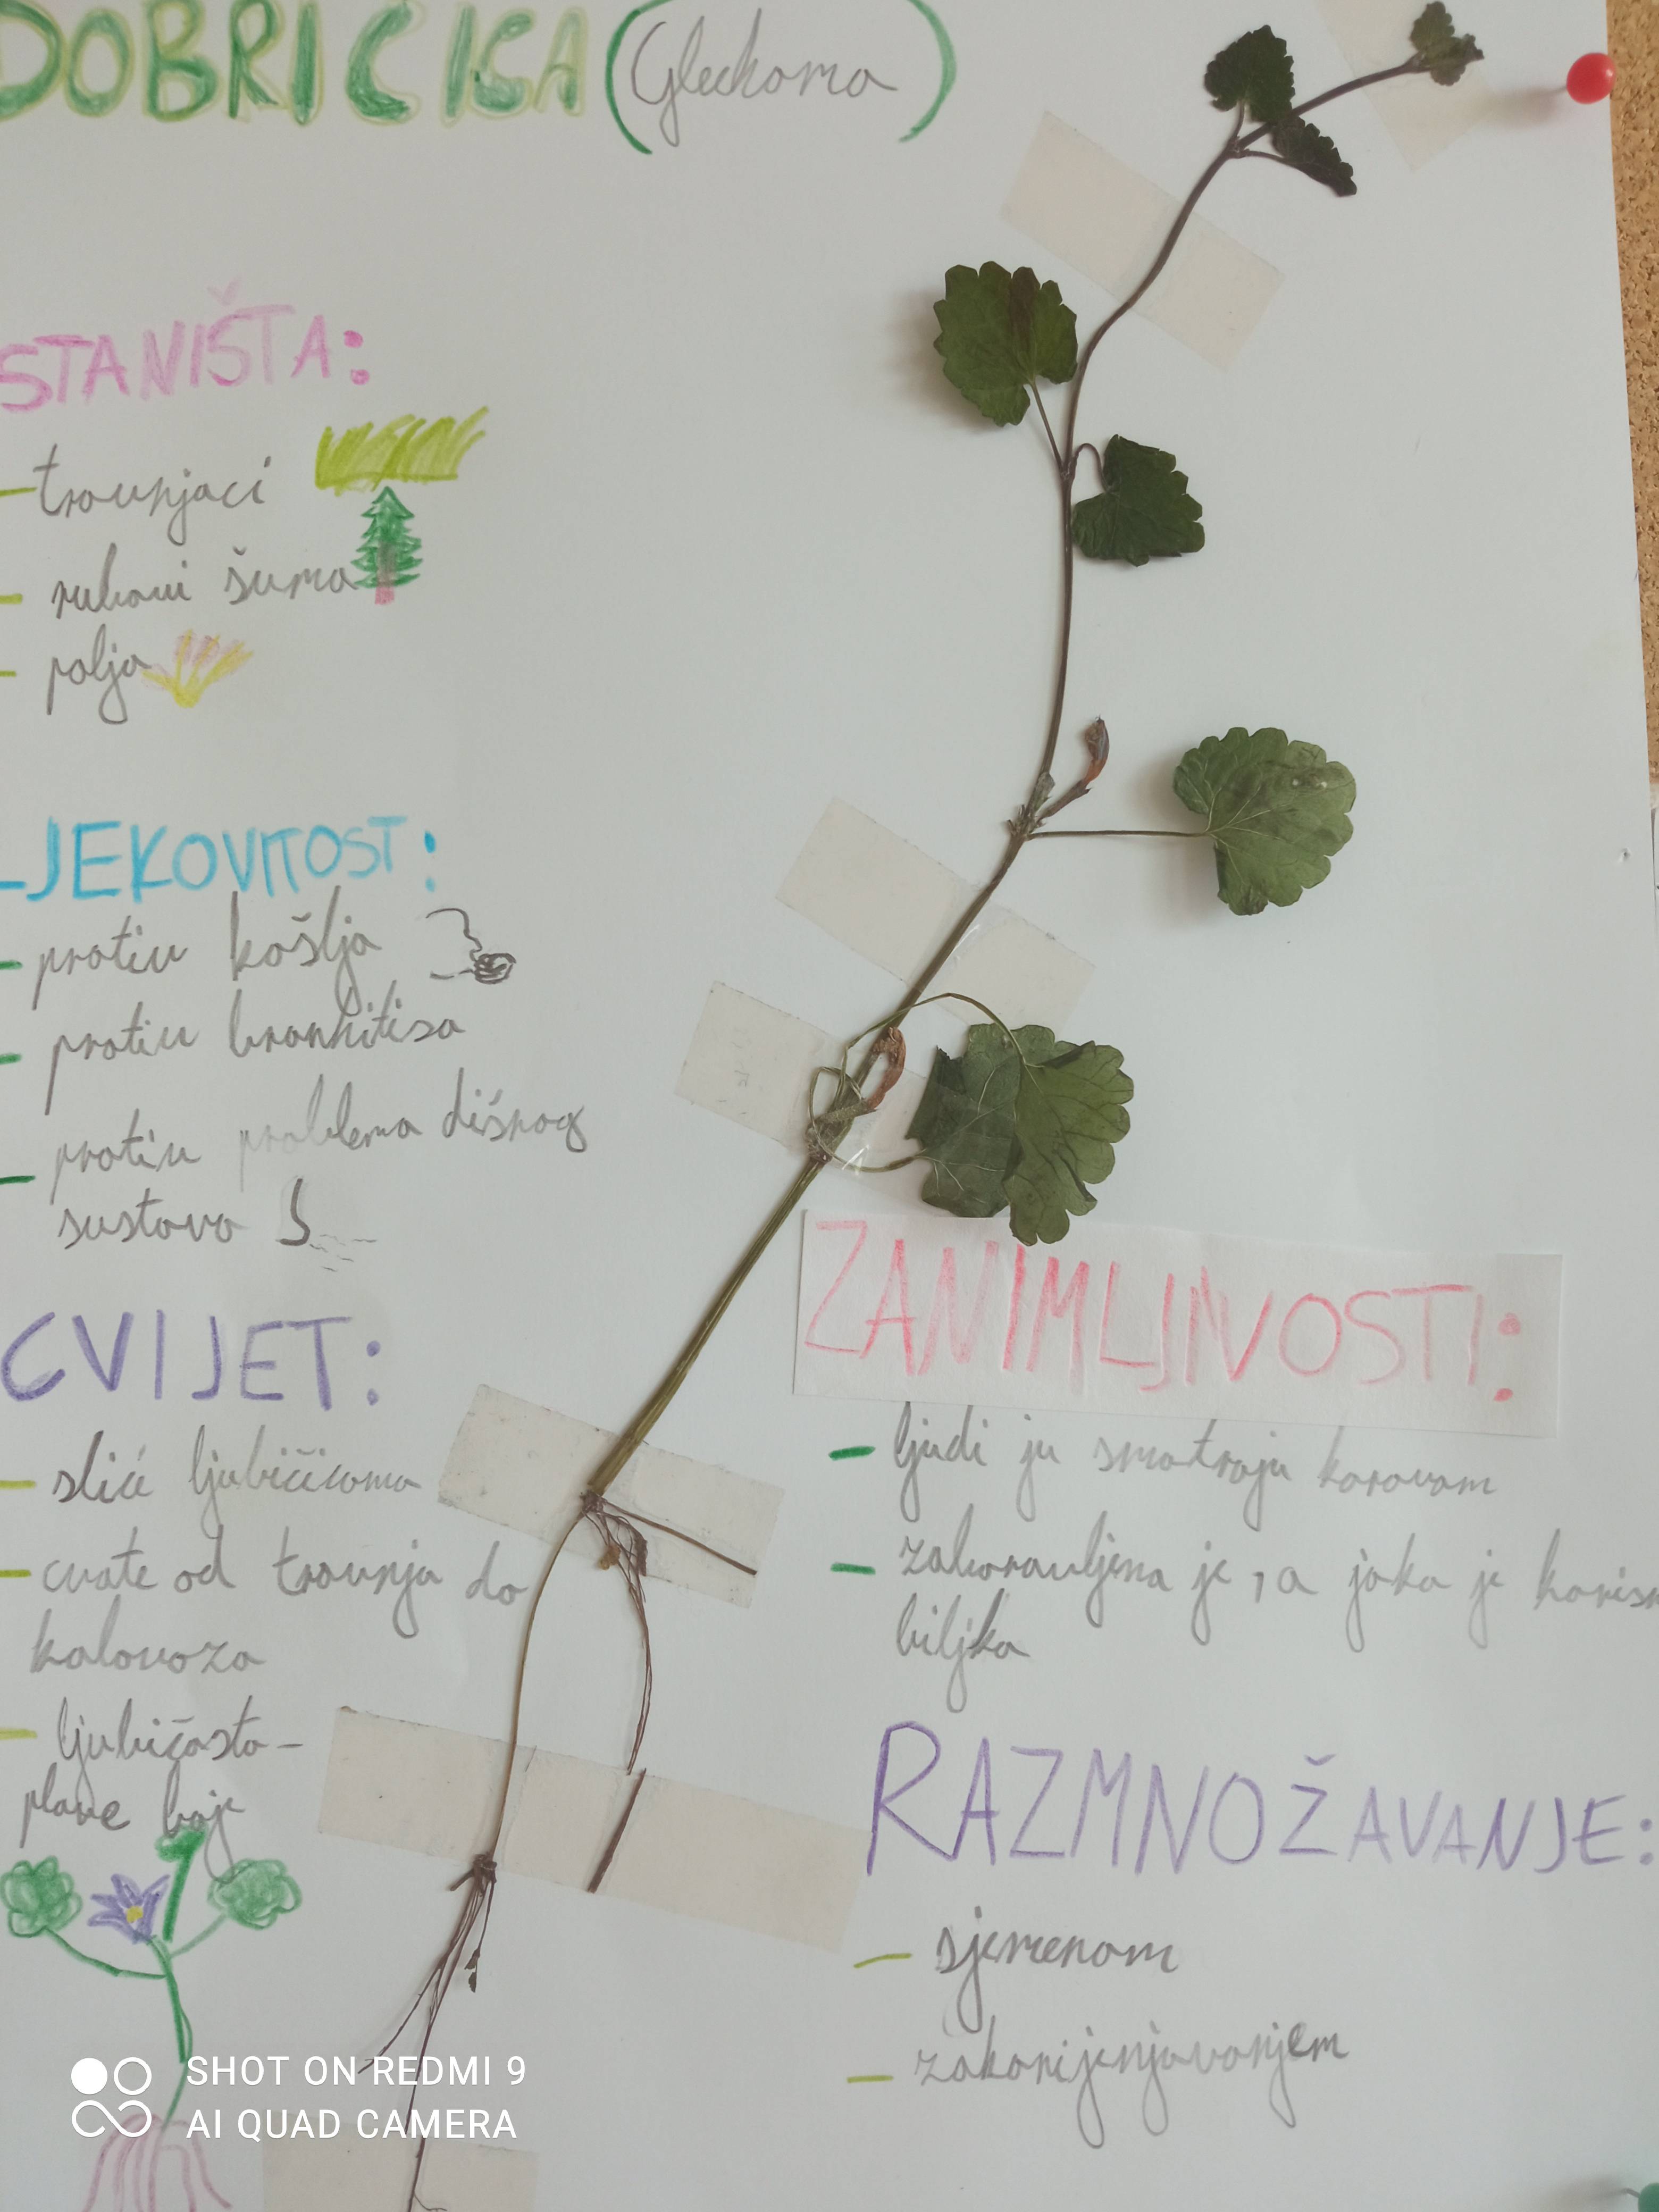 DOBRIČICA (Glechoma)
STANIŠTA:
- travnjaci
- rubovi šuma
- polja
LJEKOVITOST:
- protiv kašlja
- protiv bronhitisa
- protiv problema dišnog
sustava
CVIJET:
- sliči ljubičicama
- cvate od travnja do
kolovoza
- ljubičasto-
plave boje
ZANIMLJIVOSTI:
- ljudi ju smatraju korovom
- zaboravljena je, a jako je
biljka
RAZMNOŽAVANJE:
- sjemenom
- zakorijenjavanjem
SHOT ON REDMI 9
AI QUAD CAMERA